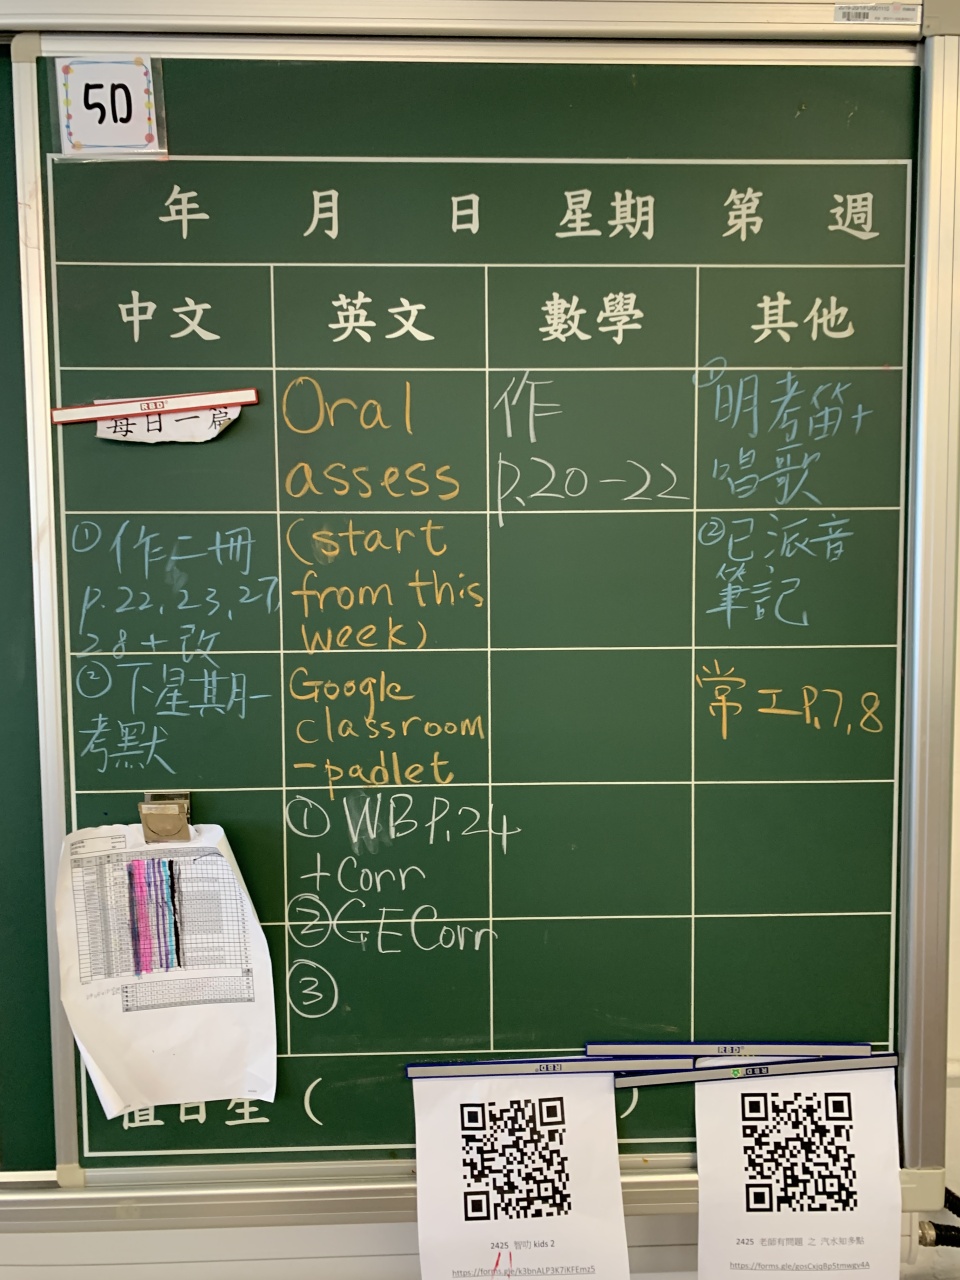 5D
年 月 日 星期 第 週
中文 英文 數學 其他
每日一篇
①作二冊
p.22,23,27,
28+改
②下星期一
考默
Oral
assess
(start
from this
week)
Google
classroom
-padlet
① WB P.24
+Corr
②GE Corr
③
作
p.20-22
①明考笛+
唱歌
②已派音
筆記
常工P.7,8
值日生 ( )
RBD
RBD
RBD
RBD
2425 智叻 kids 2
https://forms.gle/k3bnALP3K7iKFEmz5
2425 老師有問題 之 汽水知多點
https://forms.gle/gosCxjq8p5tmwgv4A